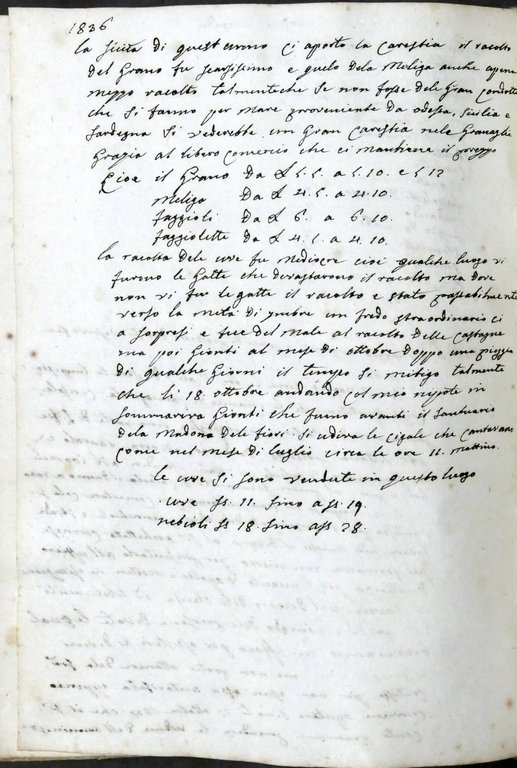 1836
la sicita di quest anno ci aporto la carestia il racolto
del Grano fu scarsissimo e quelo dela Meliga anche apena
meppo racolto talmenteche se non fosse dele Gran condotte
che si fanno per Mare proveniente da odessa, sicilia e
sardegna si vederebbe un Gran carestia nele Granaglie
Grazia al libero comercio che ci mantiene il preppo
Cioe il Grano Da £ 5. 5. a 5. 10. e 5 12
Meliga Da £ 4. 5. a 4. 10.
faggioli Da £ 6. a 6. 10.
faggiolette Da £ 4. 5. a 4. 10.
la racolta dele uve fu mediocre cioe qualche luogo vi
furono le Gatte che devastarono il racolto ma dove
non vi fur le gatte il racolto e stato
verso la metà di un fredo straordinario ci
a sorpresi e fece del male al racolto delle castagne
ma poi Gionti al mese di ottobre doppo una pioggia
di qualche Giorni il tempo si mitigo talmente
che li 18 ottobre andando col mio nepote in
sommariva Gionti che fumo avanti il santuario
dela Madona dele fiori si udiva le cigale che cantavano
come nel mese di luglio circa le ore 11. mattino.
le uve si sono vendute in questo luogo
uve ss 11. sino a ss 19.
nebioli ss 18. sino a ss 28.